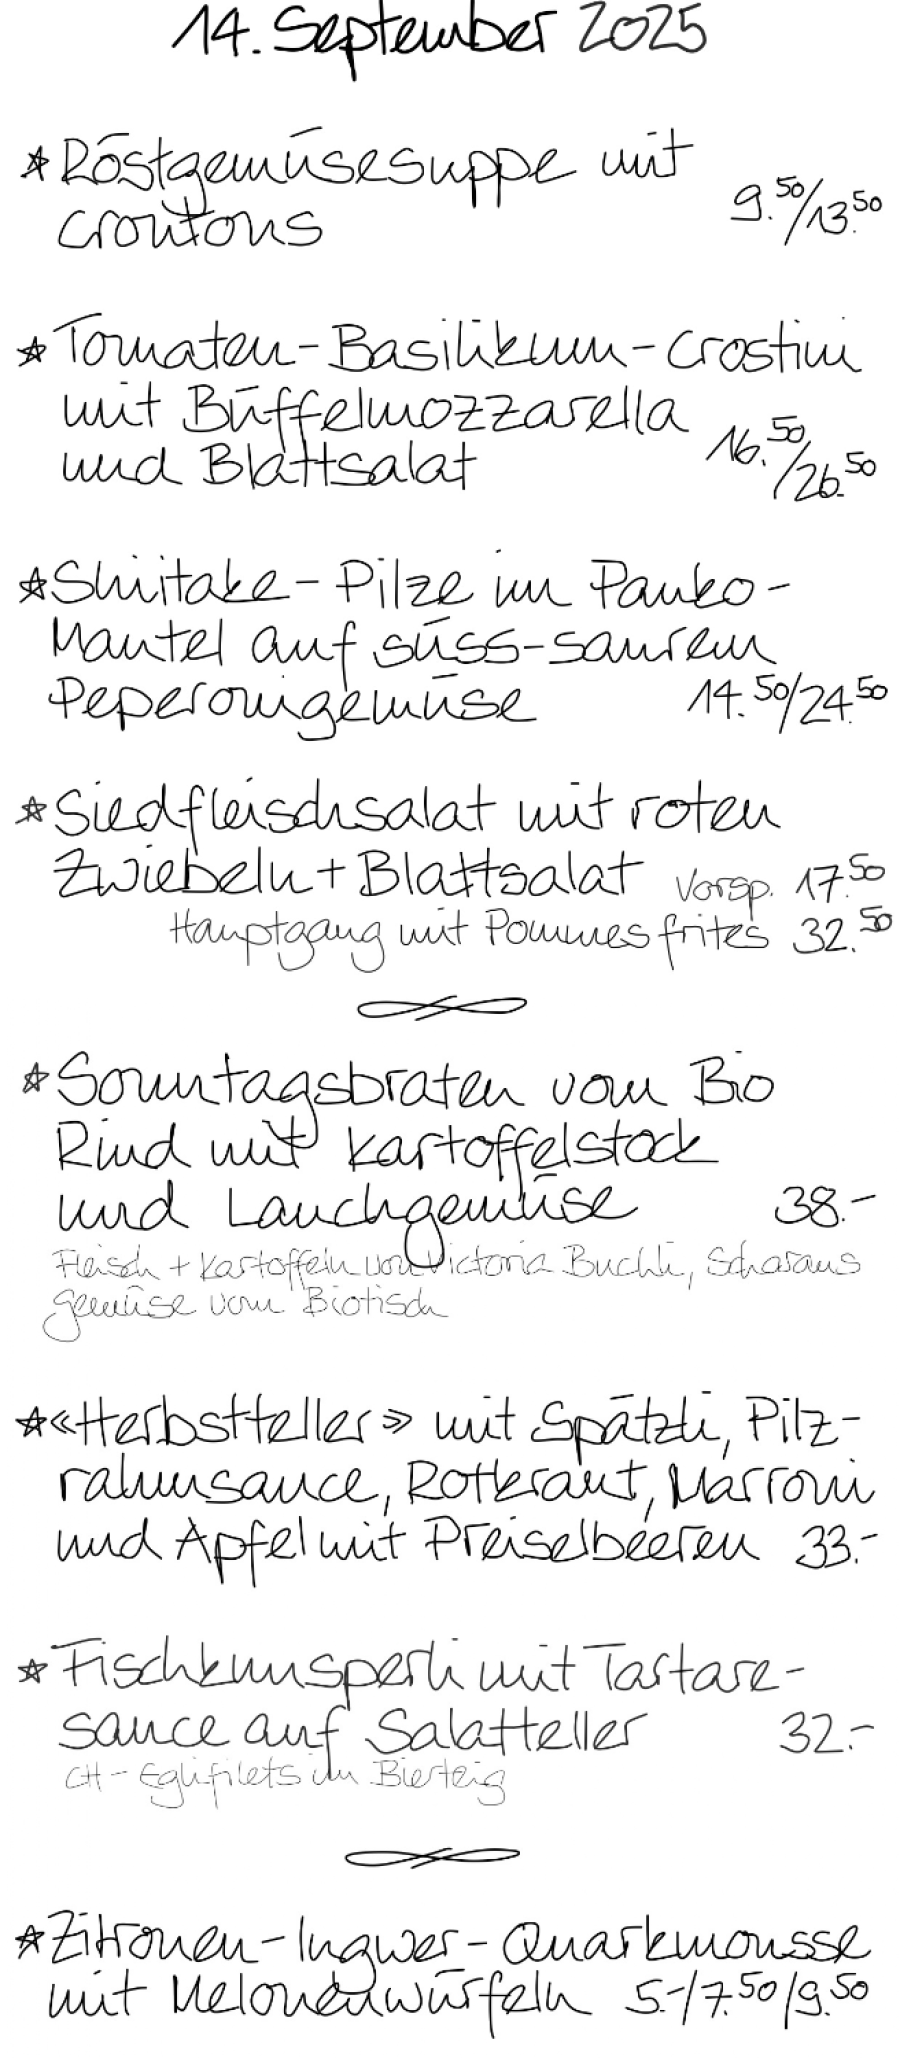 14. September 2025
* Röstgemüsesuppe mit
Croutons 9.50/13.50
* Tomaten-Basilikum-Crostini
mit Büffelmozzarella
und Blattsalat 16.50/26.50
* Shiitake-Pilze im Panko-
Mantel auf süss-saurem
Peperonigemüse 14.50/24.50
* Siedfleischsalat mit roten
Zwiebeln + Blattsalat Vorsp. 17.50
Hauptgang mit Pommes frites 32.50
* Sonntagsbraten vom Bio
Rind mit Kartoffelstock
und Lauchgemüse 38.-
Fleisch + Kartoffeln von Victoria Buchli, Scharans
Gemüse vom Biotisch
* «Herbstteller» mit Spätzli, Pilz-
rahmsauce, Rotkraut, Marroni
und Apfel mit Preiselbeeren 33.-
* Fischknusperli mit Tartare-
sauce auf Salatteller 32.-
CH-Eglifilets im Bierteig
* Zitronen-Ingwer-Quarkmousse
mit Melonenwürfeln 5.-/7.50/9.50